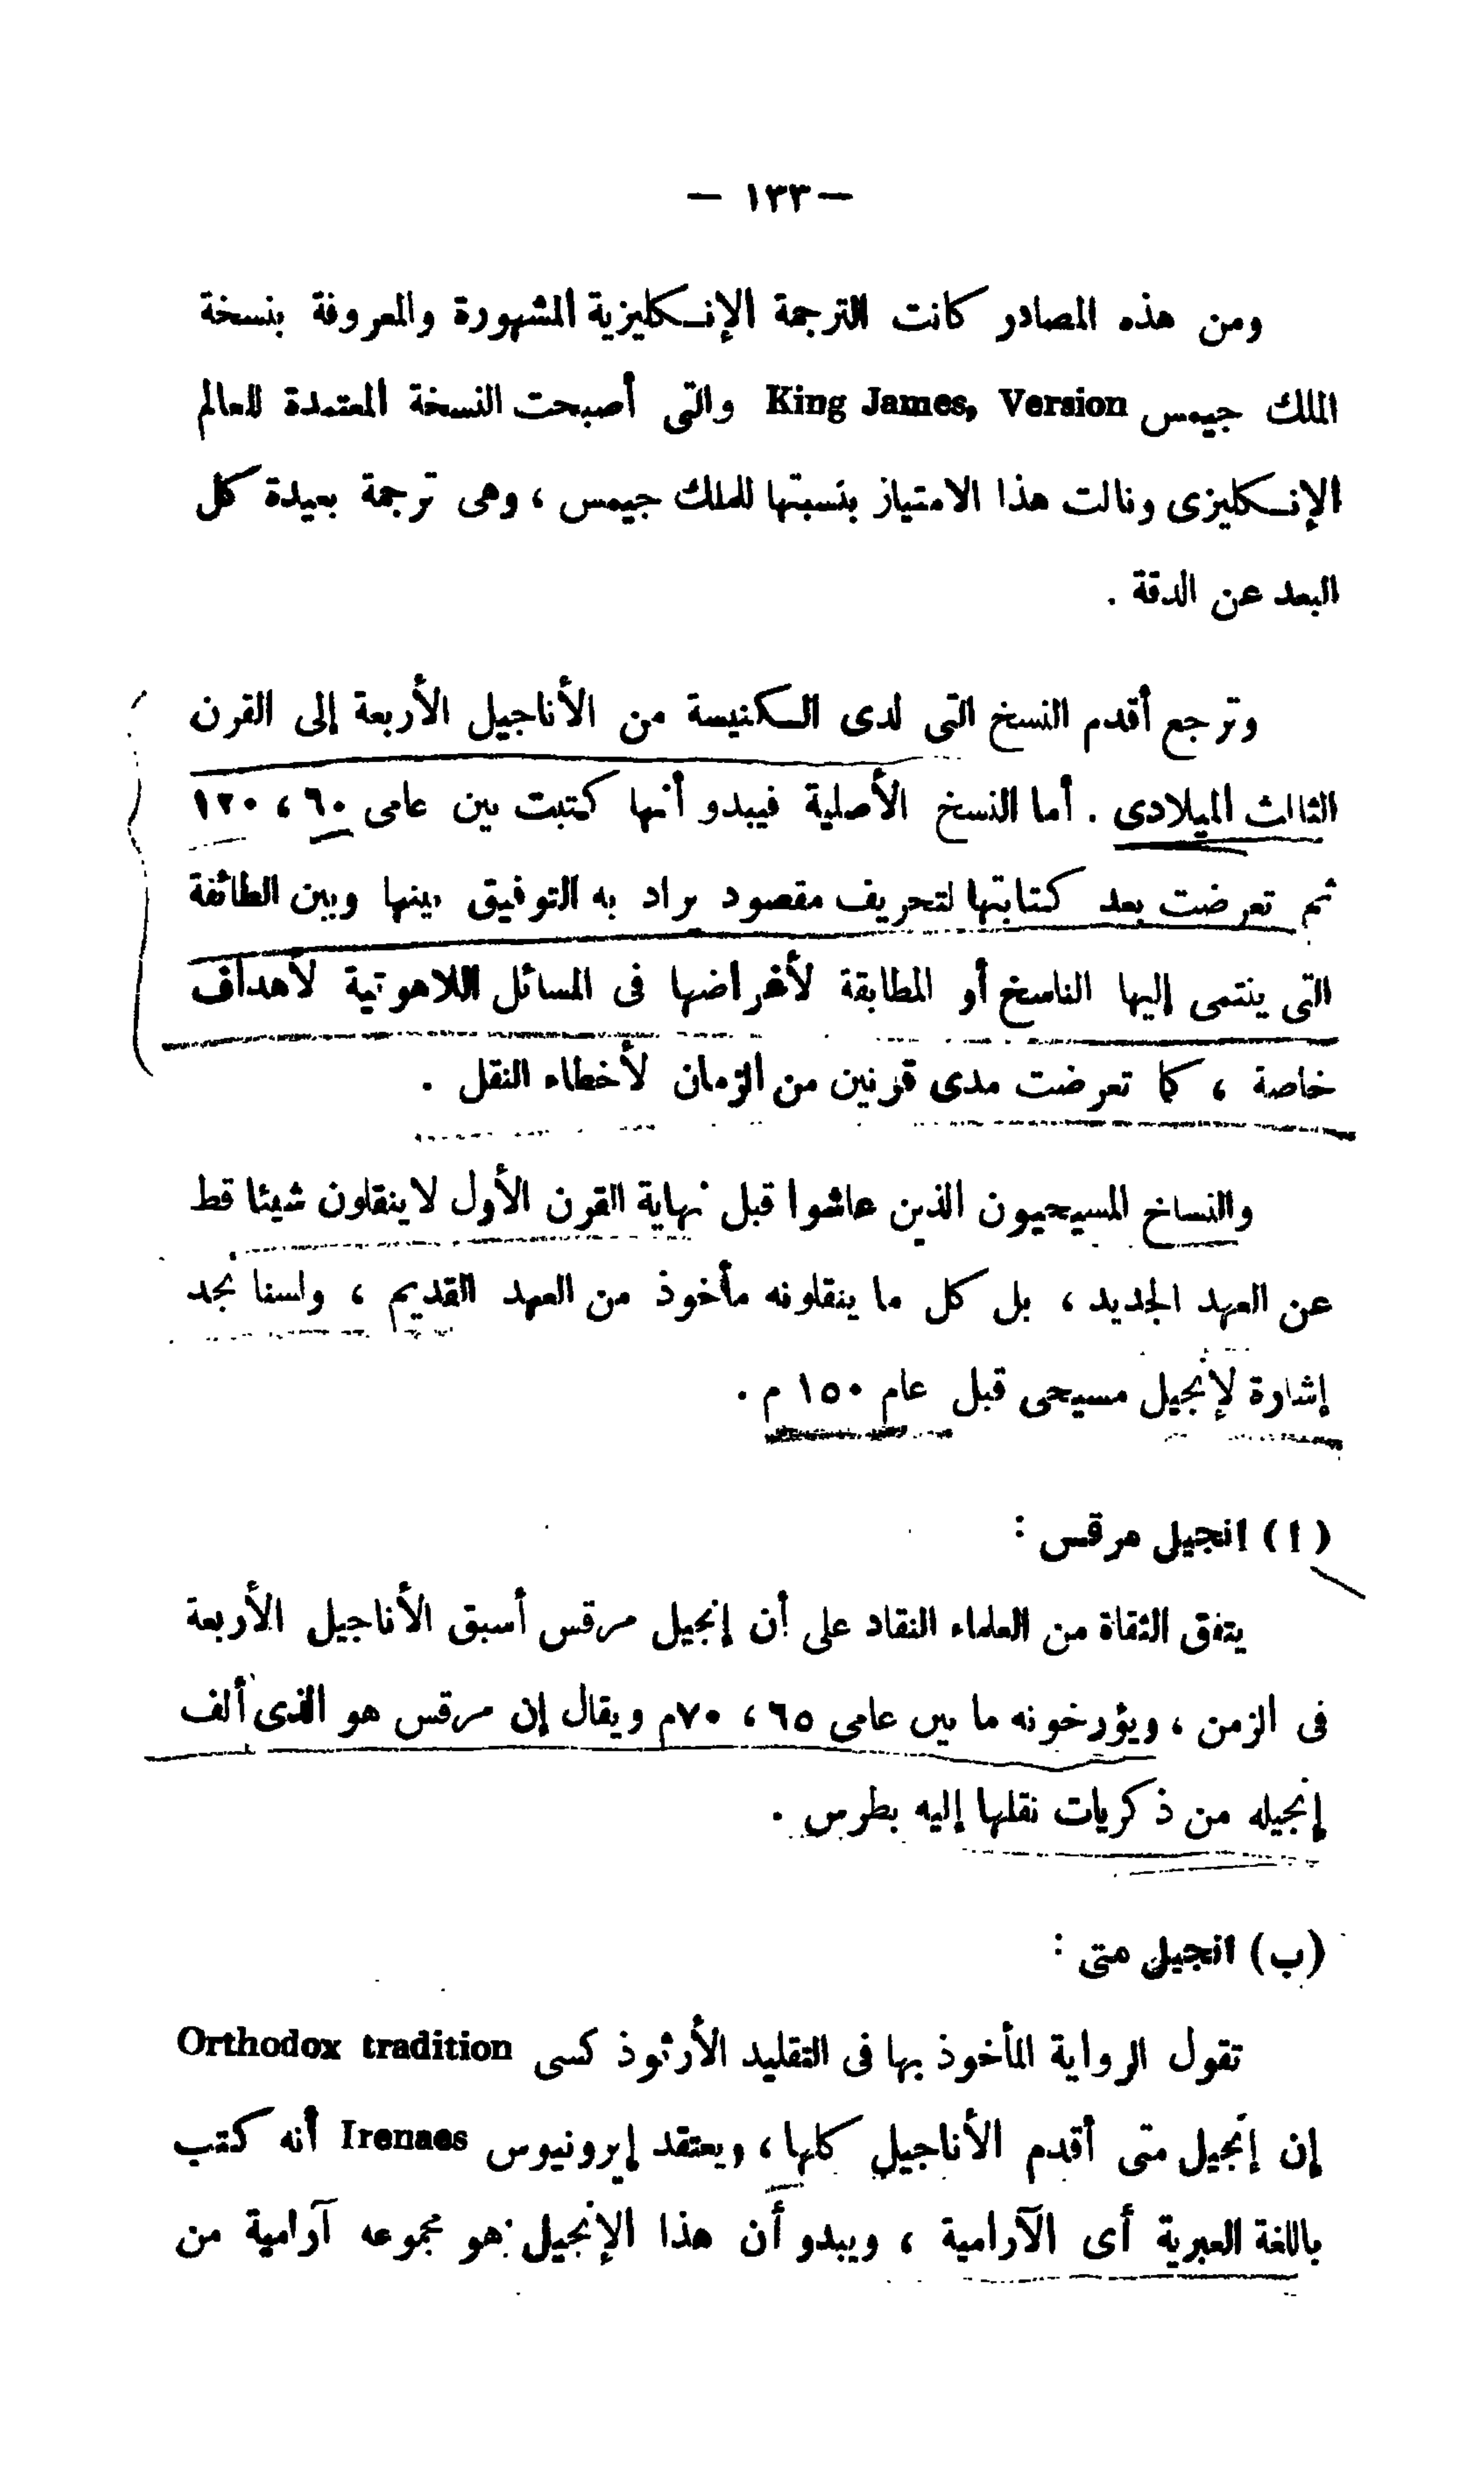 — ١٣٣ —
ومن هذه المصادر كانت الترجمة الإنكليزية المشهورة والمعروفة بنسخة
الملك جيمس King James, Version والتى أصبحت النسخة المعتمدة للعالم
الإنكليزى ونالت هذا الامتياز بنسبتها للملك جيمس ، وهى ترجمة بعيدة كل
البعد عن الدقة .
وترجع أقدم النسخ التى لدى الكنيسة من الأناجيل الأربعة إلى القرن
الثالث الميلادى . أما النسخ الأصلية فيبدو أنها كتبت بين عامى ٦٠ ، ١٢٠
ثم تعرضت بعد كتابتها لتحريف مقصود يراد به التوفيق بينها وبين الطائفة
التى ينتمى إليها الناسخ أو المطابقة لأغراضها فى المسائل اللاهوتية لأهداف
خاصة ، كما تعرضت مدى قرنين من الزمان لأخطاء النقل .
والنساخ المسيحيون الذين عاشوا قبل نهاية القرن الأول لاينقلون شيئا قط
عن العهد الجديد ، بل كل ما ينقلونه مأخوذ من العهد القديم ، ولسنا نجد
إشارة لإنجيل مسيحى قبل عام ١٥٠ م .
(ا) انجيل مرقس :
يتفق الثقاة من العلماء النقاد على أن إنجيل مرقس أسبق الأناجيل الأربعة
فى الزمن ، ويؤرخونه ما بين عامى ٦٥ ، ٧٠م ويقال إن مرقس هو الذى ألف
إنجيله من ذكريات نقلها إليه بطرس .
(ب) انجيل متى :
تقول الرواية المأخوذ بها فى التقليد الأرثوذكسى Orthodox tradition
إن إنجيل متى أقدم الأناجيل كلها ، ويعتقد إيرونيوس Irenaes أنه كتب
باللغة العبرية أى الآرامية ، ويبدو أن هذا الإنجيل هو مجموعه آرامية من